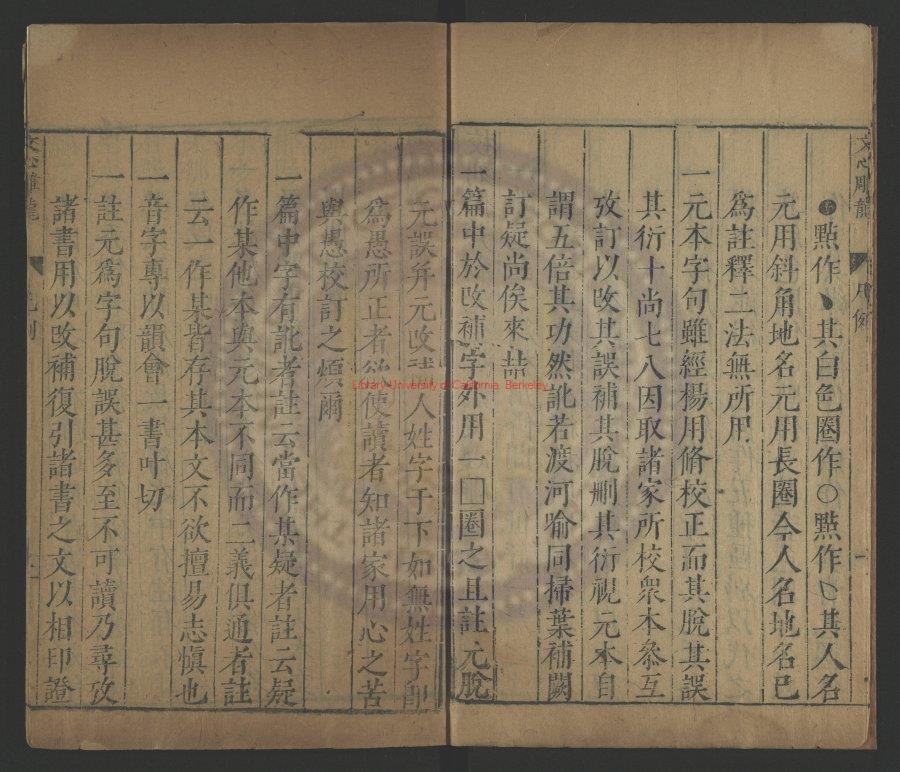 文心雕龍 凡例 一
點作 其白色圈作○點作 其人名
元用斜角地名元用長圈今人名地名已
為註釋二法無所用
一元本字句雖經楊用脩校正而其脫其誤
其衍十尚七八因取諸家所校衆本參互
攷訂以改其誤補其脫刪其衍視元本自
謂五倍其功然訛若渡河喻同掃葉補闕
訂疑尚俟來喆
一篇中於改補字外用一□圈之且註元脫
元誤并元改 人姓字于下如無姓字即
為愚所正者 使讀者知諸家用心之苦
與愚校訂之煩爾
一篇中字有訛者註云當作某疑者註云疑
作某其他本與元本不同而二義俱通者註
云一作某皆存其本文不欲擅易志慎也
一音字專以韻會一書叶切
一註元為字句脫誤甚多至不可讀乃尋攷
諸書用以改補復引諸書之文以相印證
文心雕龍
Library University of California, Berkeley